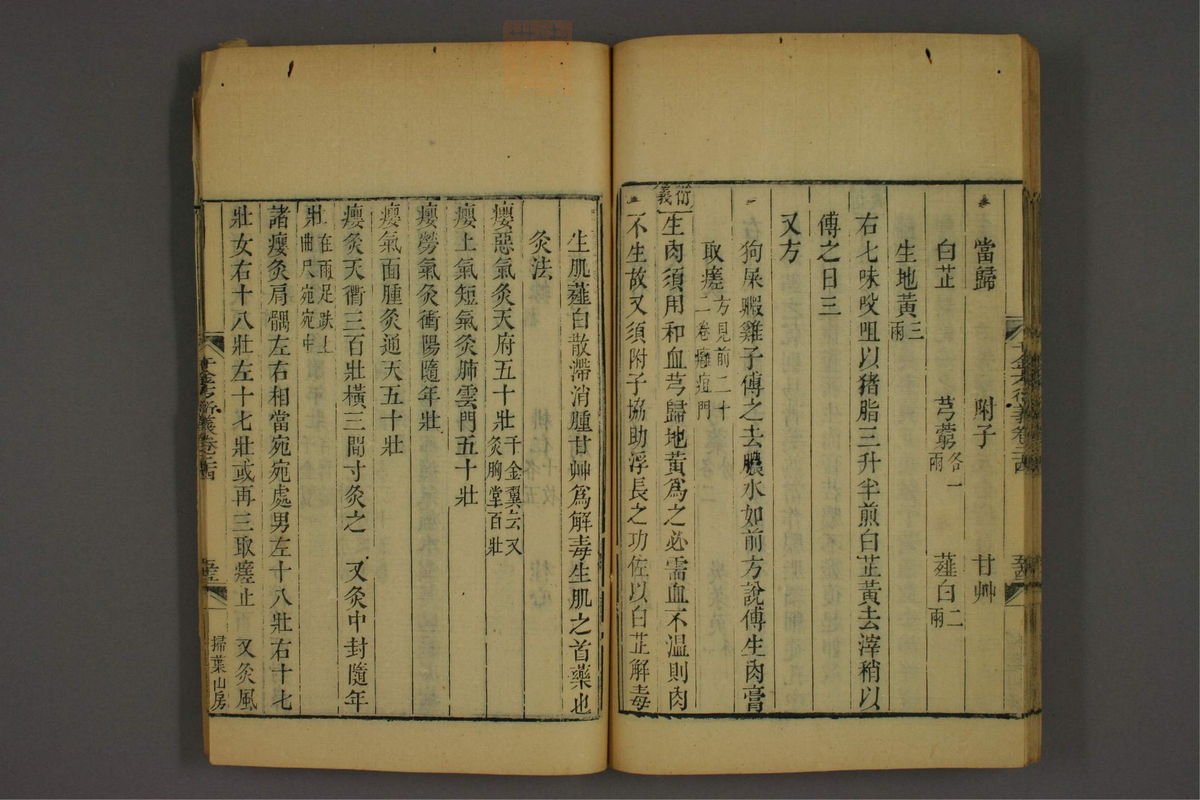 當歸 附子 甘艸
白芷 芎藭各一兩 薤白二兩
生地黃三兩
右七味㕮咀以豬脂三升半煎白芷黃去滓稍以
傅之日三
又方
狗屎㬉雞子傅之去膿水如前方說傅生肉膏
取瘥方見前二十二卷癰疽門
衍義
生肉須用和血芎歸地黃爲之必需血不溫則肉
不生故又須附子協助浮長之功佐以白芷解毒
生肌薤白散滯消腫甘艸爲解毒生肌之首藥也
灸法
癭惡氣灸天府五十壯千金翼云又灸胸堂百壯
癭上氣短氣灸肺雲門五十壯
癭勞氣灸衝陽隨年壯
癭氣面腫灸通天五十壯
癭灸天衢三百壯橫三間寸灸之 又灸中封隨年
壯在兩足趺上曲尺宛宛中
諸癭灸肩髃左右相當宛宛處男左十八壯右十七
壯女右十八壯左十七壯或再三取瘥止 又灸風
千金方衍義卷二十四
掃葉山房